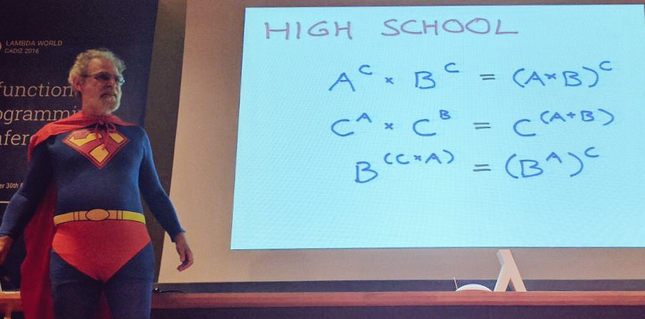 LAMBDA WORLD
CADIZ 2016
function
ogrammi
nfer
er 30th
HIGH SCHOOL
A^C × B^C = (A×B)^C
C^A × C^B = C^(A+B)
B^(C×A) = (B^A)^C